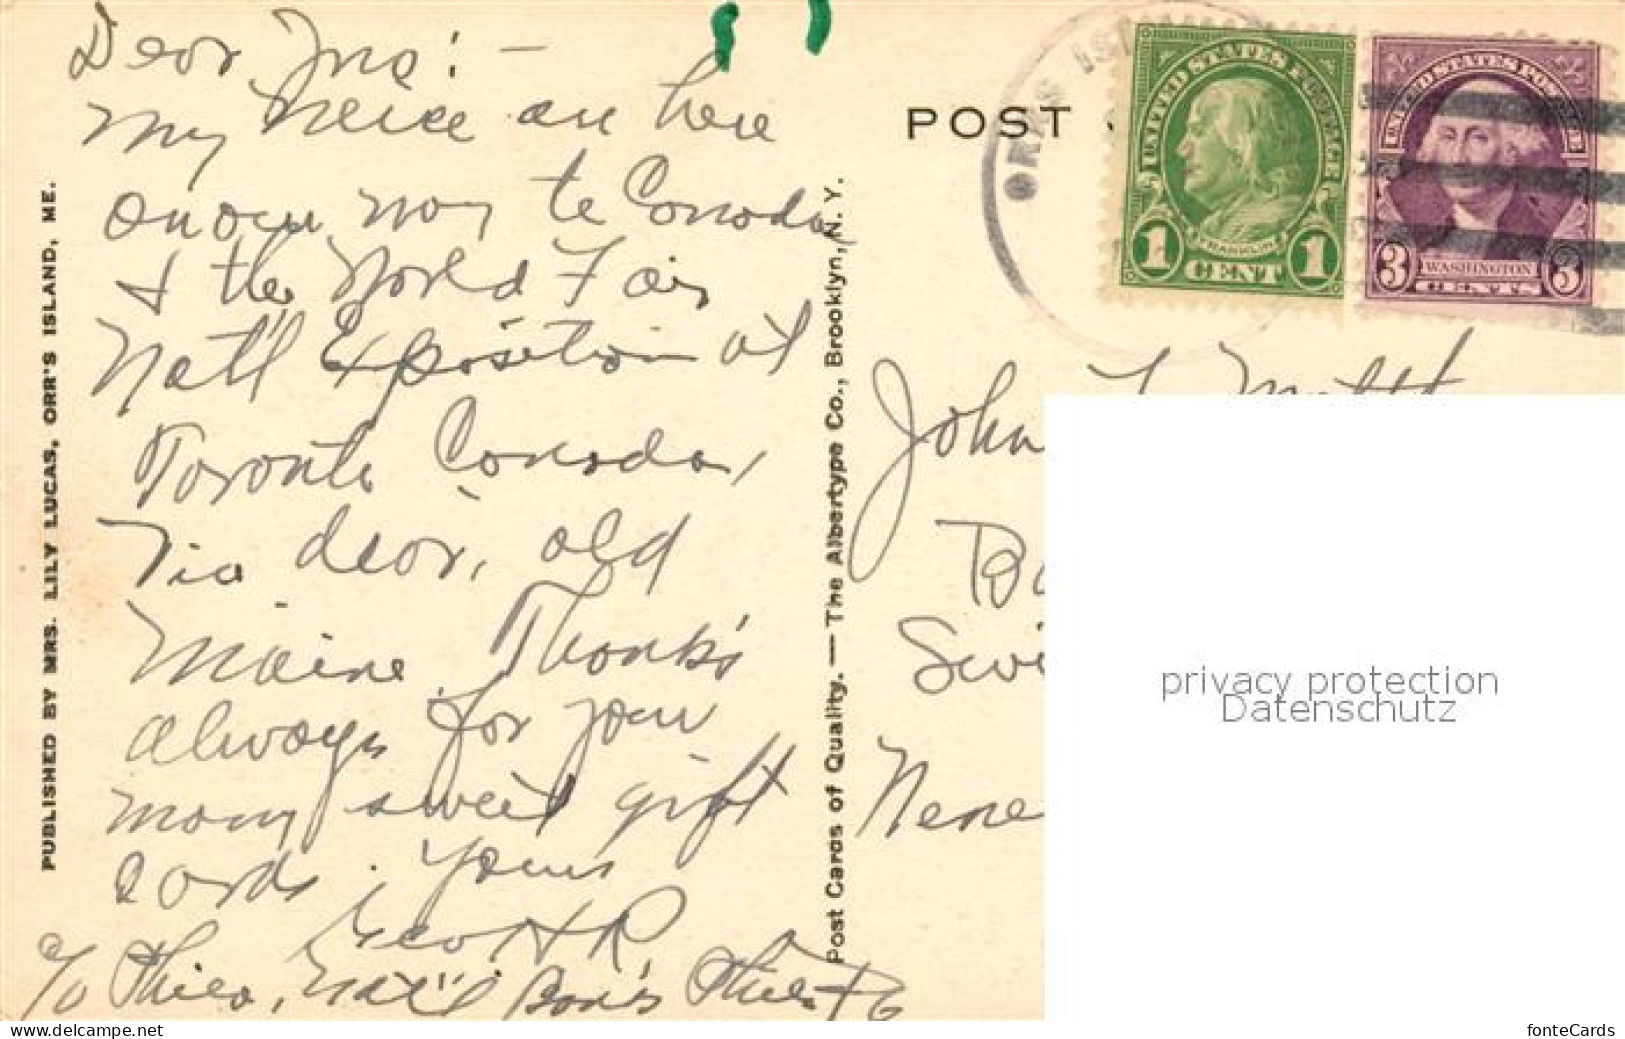 Dear Jno: -
my neice are here
on our way to Canada
& the World Fair
Nat'l Exposition at
Toronto Canada,
Via dear, old
Maine. Thank's
always for your
many sweet gift
cards. Yours
Geo H R
c/o Phila, Nat'l Bank's Phila Pa
PUBLISHED BY MRS. LILY LUCAS, ORR'S ISLAND, ME.
Post Cards of Quality. — The Albertype Co., Brooklyn, N. Y.
POST
ORRS ISL
UNITED STATES POSTAGE
FRANKLIN
1 CENT 1
UNITED STATES POSTAGE
WASHINGTON
3 CENTS 3
John
Swi
privacy protection
Datenschutz
www.delcampe.net
fonteCards